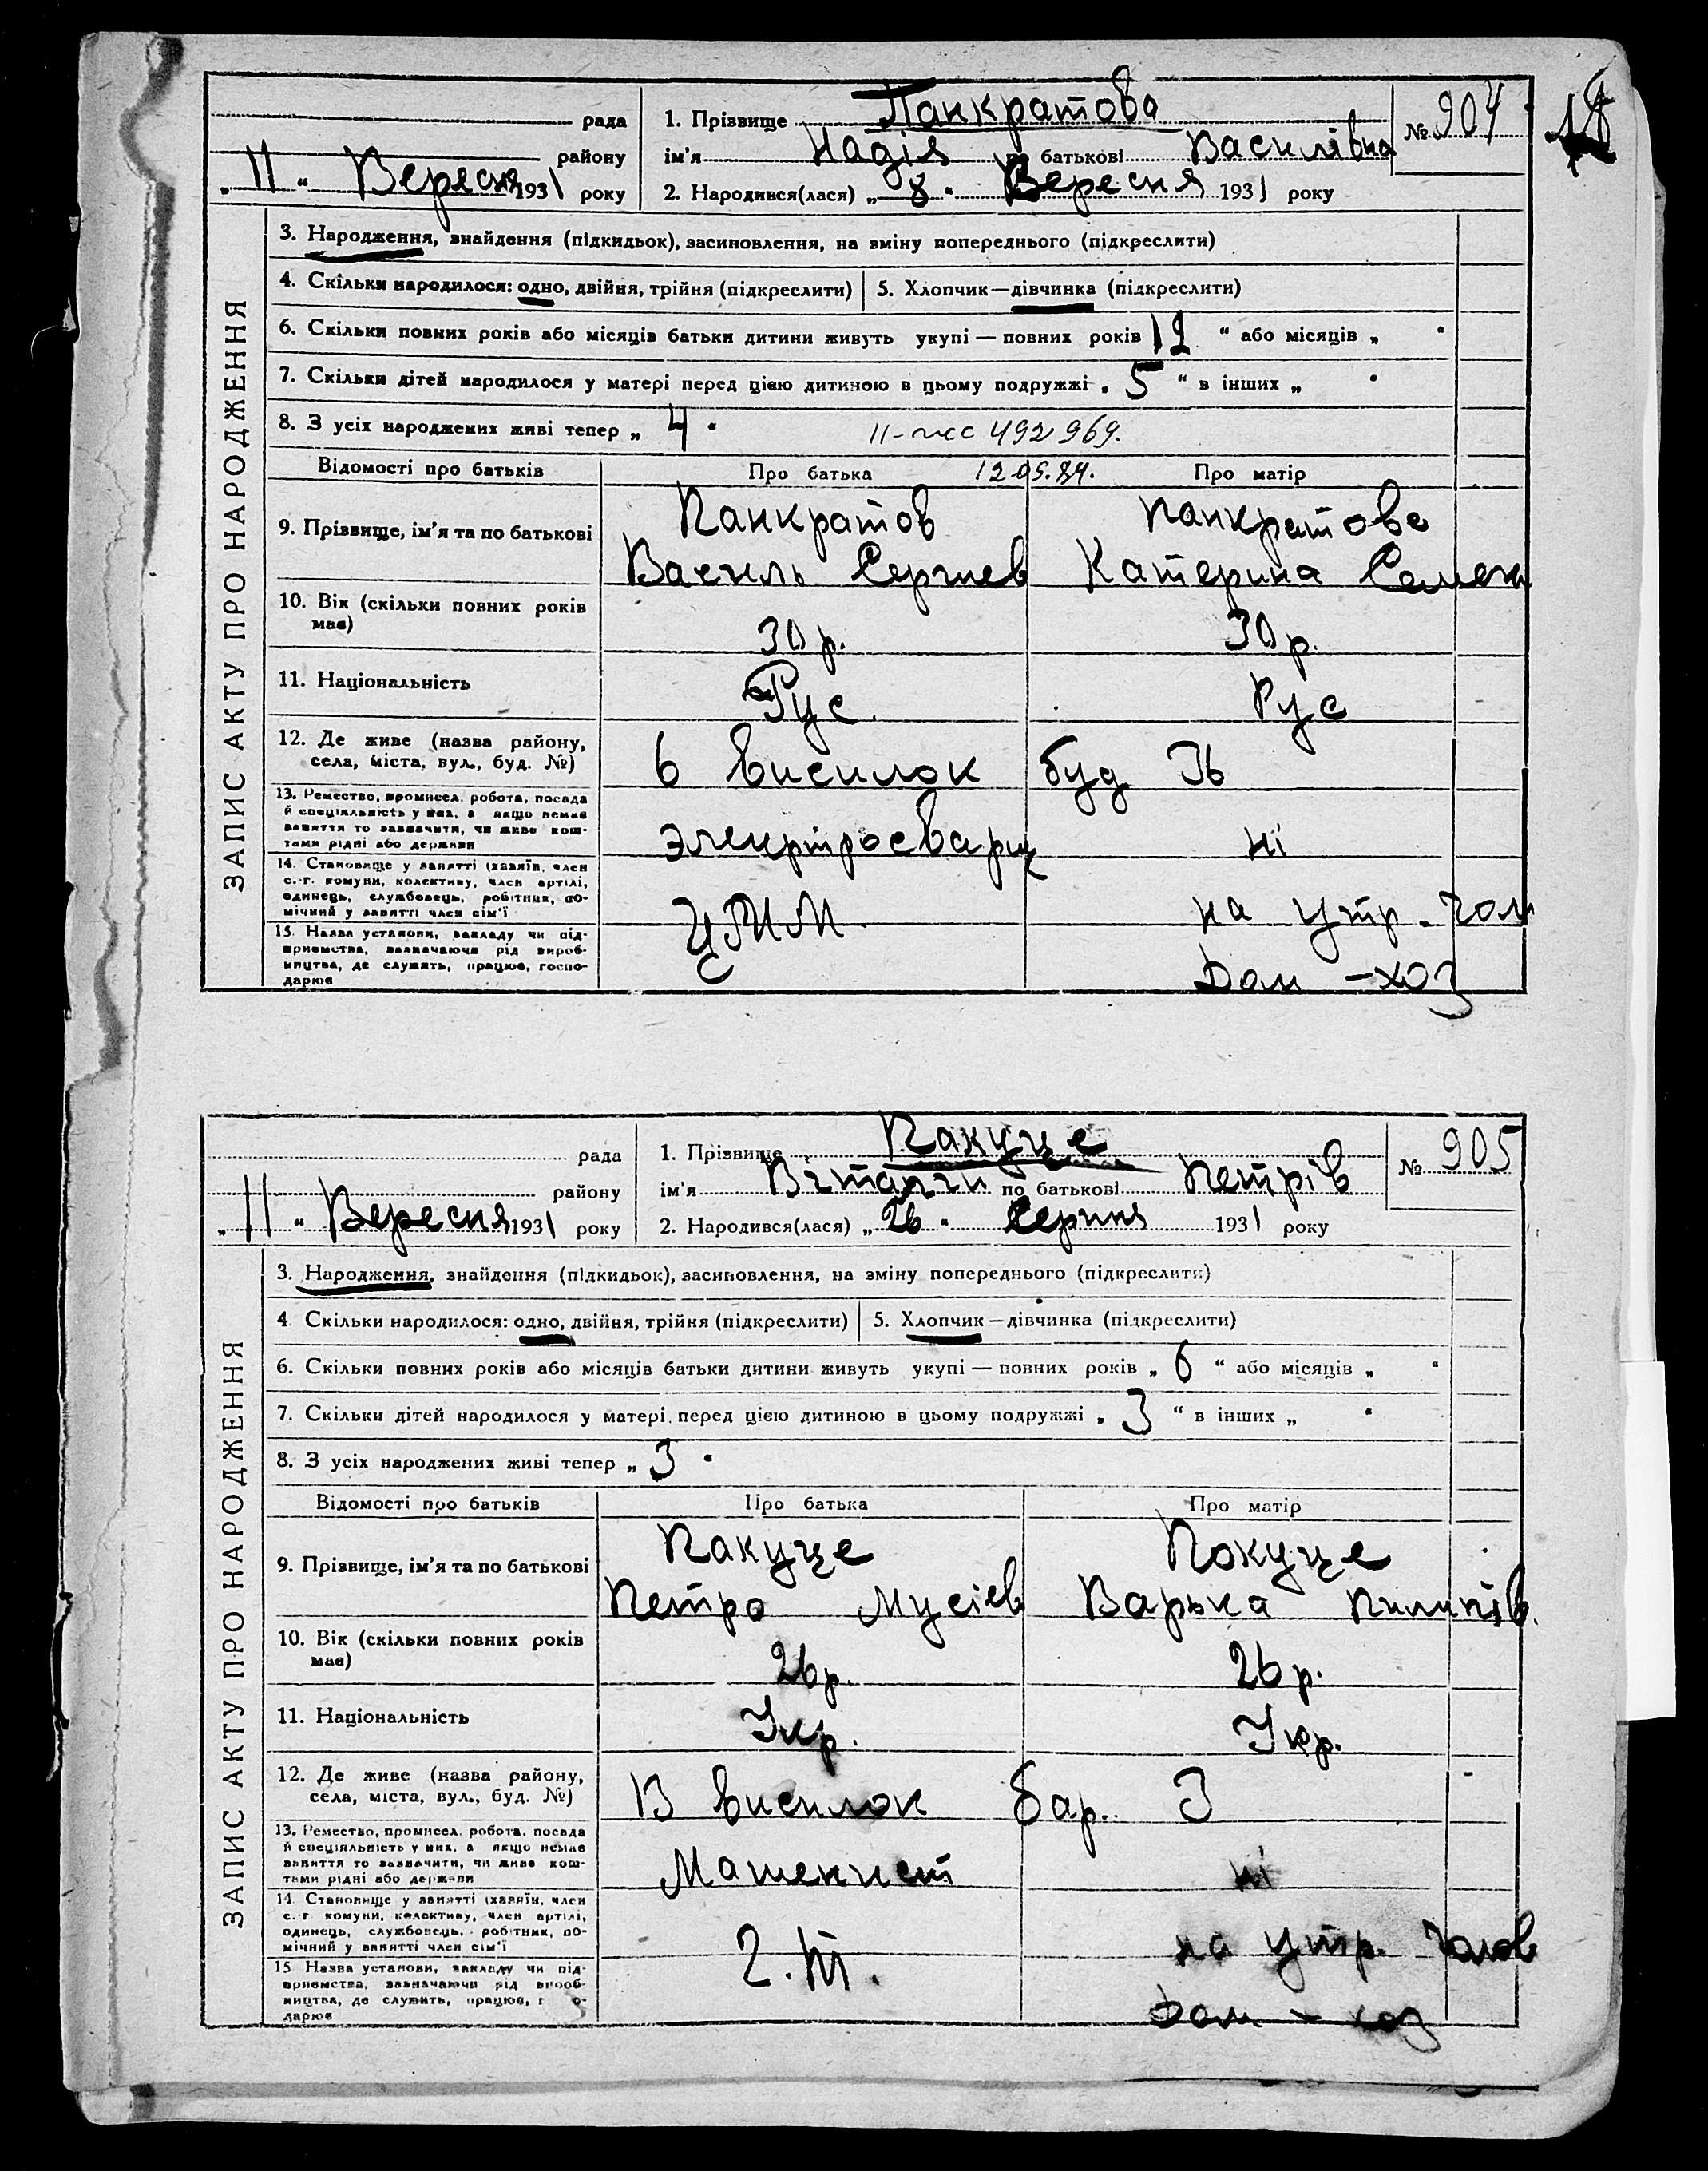 рада
району
„ 11 “ Вересня 1931 року
1. Прізвище Панкратова
ім'я Надія по батькові Василівна
2. Народився(лася) „ 8 “ Вересня 1931 року
№ 904
ЗАПИС АКТУ ПРО НАРОДЖЕННЯ
3. Народження, знайдення (підкидьок), засиновлення, на зміну попереднього (підкреслити)
4. Скільки народилося: одно, двійня, трійня (підкреслити) 5. Хлопчик—дівчинка (підкреслити)
6. Скільки повних років або місяців батьки дитини живуть укупі — повних років 12 “ або місяців „ “
7. Скільки дітей народилося у матері перед цією дитиною в цьому подружжі „ 5 “ в інших „ “
8. З усіх народжених живі тепер „ 4 “
492969.
12.05.84.
Відомості про батьків Про батька Про матір
9. Прізвище, ім'я та по батькові Панкратов Панкратова
Василь Сергиев Катерина Семен
10. Вік (скільки повних років 30 р. 30 р.
має)
11. Національність Рус Рус
12. Де живе (назва району,
села, міста, вул., буд. №) 6 висилок буд
13. Ремество, промисел, робота, посада
й спеціяльність у них, а якщо немає
заняття то зазначити, чи живе кош-
тами рідні або держави ні
14. Становище у занятті (хазяїн, член
с.-г. комуни, колективу, член артілі,
одинець, службовець, робітник, по-
мічний у занятті член сім'ї на утр. чол
15. Назва установи, закладу чи під-
приємства, зазначаючи рід вироб-
ництва, де служить, працює, госпо-
дарює Дом-хоз
рада
району
„ 11 “ Вересня 1931 року
1. Прізвище Пакуце
ім'я по батькові Петрів
2. Народився(лася) „ 26 “ Серпня 1931 року
№ 905
ЗАПИС АКТУ ПРО НАРОДЖЕННЯ
3. Народження, знайдення (підкидьок), засиновлення, на зміну попереднього (підкреслити)
4 Скільки народилося: одно, двійня, трійня (підкреслити) 5. Хлопчик—дівчинка (підкреслити)
6. Скільки повних років або місяців батьки дитини живуть укупі — повних років „ 6 “ або місяців „ “
7. Скільки дітей народилося у матері перед цією дитиною в цьому подружжі „ 3 “ в інших „ “
8. З усіх народжених живі тепер „ 3 “
Відомості про батьків Про батька Про матір
9. Прізвище, ім'я та по батькові Пакуце Покуце
Петро Мусіев Варька Пилипів.
10. Вік (скільки повних років 26 р. 26 р.
має)
11. Національність Укр. Укр.
12. Де живе (назва району,
села, міста, вул., буд. №) В висилок бар. 3
13. Ремество, промисел, робота, посада
й спеціяльність у них, а якщо немає
заняття то зазначити, чи живе кош-
тами рідні або держави Машенист ні
14. Становище у занятті (хазяїн, член
с.-г. комуни, колективу, член артілі,
одинець, службовець, робітник, по-
мічний у занятті член сім'ї на утр. чолов
15 Назва установи, закладу чи під-
приємства, зазначаючи рід вироб-
ництва, де служить, працює, госпо-
дарює Дом-хоз